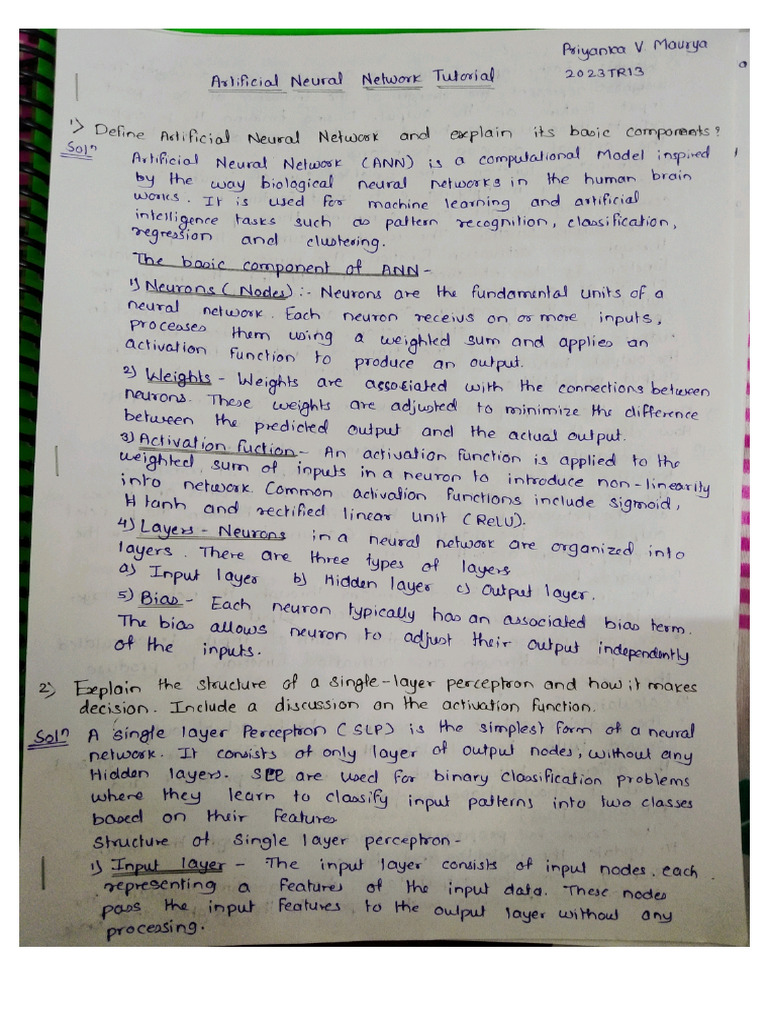 Priyanka V Maurya
2023TR13
Artificial Neural Network Tutorial
1) Define Artificial Neural Network and explain its basic components?
Solⁿ Artificial Neural Network (ANN) is a computational Model inspired
by the way biological neural networks in the human brain
works. It is used for machine learning and artificial
intelligence tasks such as pattern recognition, classification,
regression and clustering.
The basic component of ANN -
1) Neurons (Nodes) :- Neurons are the fundamental units of a
neural network. Each neuron receivs on or more inputs,
processes them using a weighted sum and applies an
activation function to produce an output.
2) Weights - Weights are associated with the connections between
neurons. These weights are adjusted to minimize the difference
between the predicted output and the actual output.
3) Activation fuction - An activation function is applied to the
weighted sum of inputs in a neuron to introduce non-linearity
into network. Common activation functions include sigmoid,
tanh and rectified linear unit (ReLU).
4) Layers - Neurons in a neural network are organized into
layers. There are three types of layers
a) Input layer b) Hidden layer c) Output layer.
5) Bias - Each neuron typically has an associated bias term.
The bias allows neuron to adjust their output independently
of the inputs.
2) Explain the structure of a single-layer perceptron and how it makes
decision. Include a discussion on the activation function.
Solⁿ A single layer Perceptron (SLP) is the simplest form of a neural
network. It consists of only layer of output nodes, without any
Hidden layers. SLP are used for binary classification problems
where they learn to classify input patterns into two classes
based on their features
Structure of Single layer perceptron -
1) Input layer - The input layer consists of input nodes. each
representing a features of the input data. These nodes
pass the input features to the output layer without any
processing.